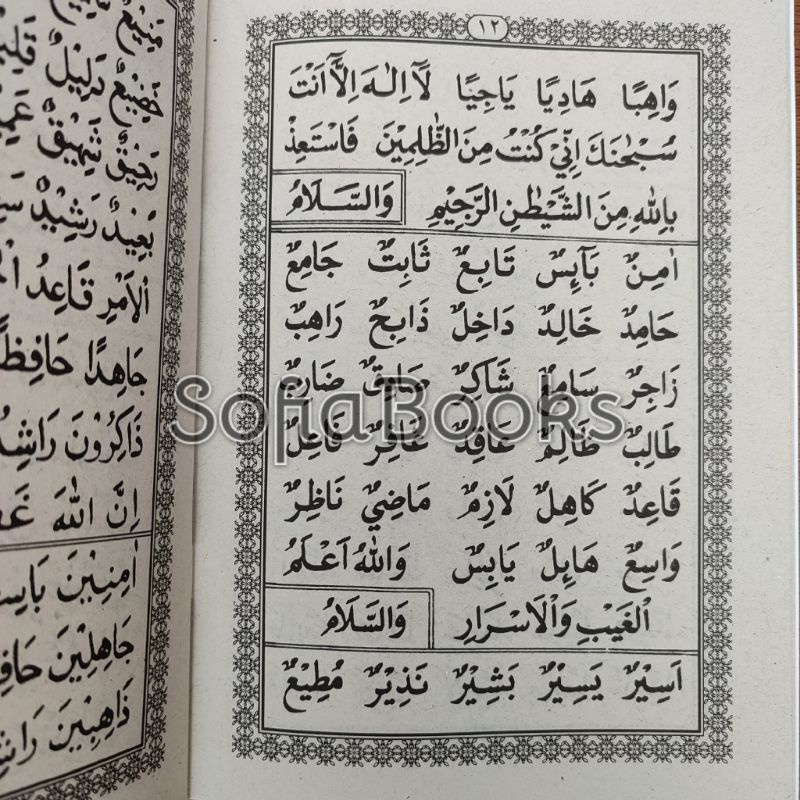 ١٢
وَاهِبًا هَادِيًا يَاجِيًا لَآ اِلٰهَ اِلَّآ اَنْتَ
سُبْحٰنَكَ اِنِّيْ كُنْتُ مِنَ الظّٰلِمِيْنَ فَاسْتَعِذْ
بِاللهِ مِنَ الشَّيْطٰنِ الرَّجِيْمِ وَالسَّلَامُ
اٰمِنٌ بَآئِسٌ تَابِعٌ ثَابِتٌ جَامِعٌ
حَامِدٌ خَالِدٌ دَاخِلٌ ذَابِحٌ رَاهِبٌ
زَاجِرٌ سَامِعٌ شَاكِرٌ صَادِقٌ ضَارِبٌ
طَالِبٌ ظَالِمٌ عَاقِدٌ غَافِرٌ فَاعِلٌ
قَاعِدٌ كَاهِلٌ لَازِمٌ مَاضِيٌ نَاظِرٌ
وَاسِعٌ هَابِلٌ يَابِسٌ وَاللهُ اَعْلَمُ
الْغَيْبِ وَالْاَسْرَارِ وَالسَّلَامُ
اَسِيْرٌ يَسِيْرٌ بَشِيْرٌ نَذِيْرٌ مُطِيْعٌ
مَنِيْعٌ
دَلِيْلٌ
رَحِيْقٌ شَهِيْقٌ
بَعِيْدٌ رَشِيْدٌ
الْاَمْرِ قَاعِدُ
جَاهِدًا حَافِظًا
ذَاكِرُوْنَ
اِنَّ اللهَ
اٰمِنِيْنَ
جَاهِلِيْنَ
ذَاهِبِيْنَ
SofiaBooks